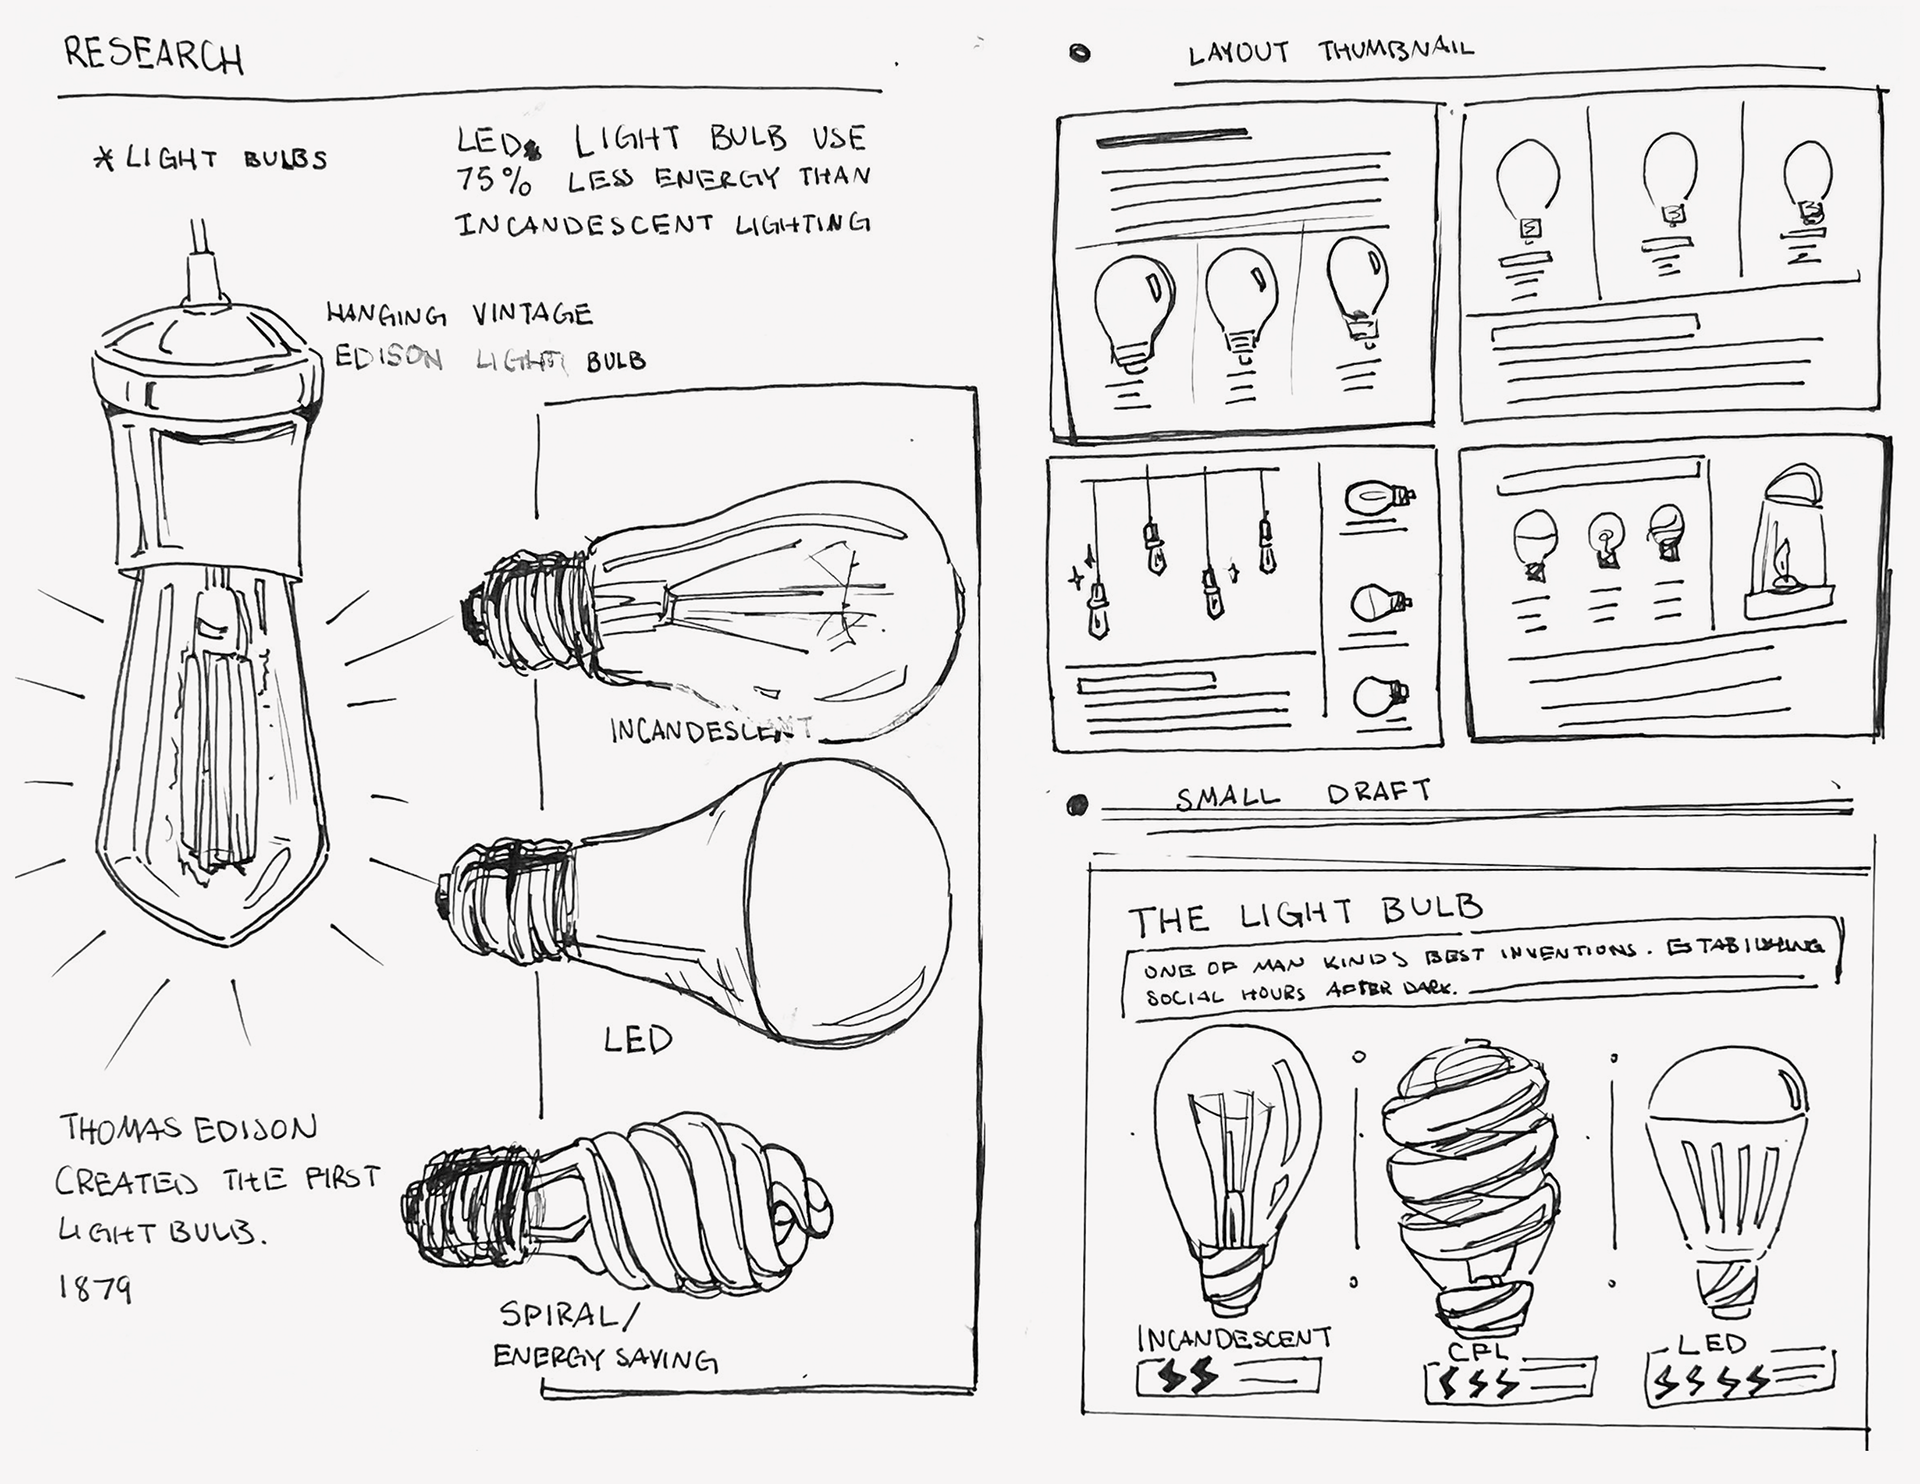 RESEARCH
* LIGHT BULBS
LED LIGHT BULB USE
75% LESS ENERGY THAN
INCANDESCENT LIGHTING
HANGING VINTAGE
EDISON LIGHT BULB
INCANDESCENT
LED
THOMAS EDISON
CREATED THE FIRST
LIGHT BULB.
1879
SPIRAL/
ENERGY SAVING
LAYOUT THUMBNAIL
SMALL DRAFT
THE LIGHT BULB
ONE OF MAN KINDS BEST INVENTIONS. ESTABILISHING
SOCIAL HOURS AFTER DARK.
INCANDESCENT
CFL
LED